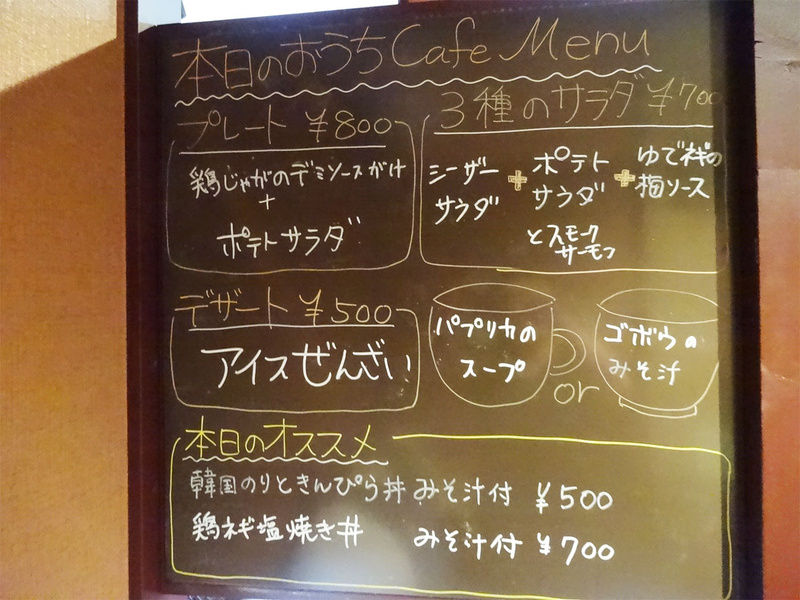 本日のおうちCafe Menu
プレート ¥800
鶏じゃがのデミソースがけ
+
ポテトサラダ
3種のサラダ ¥700
シーザー
サラダ
+
ポテト
サラダ
とスモーク
サーモン
+
ゆでネギの
梅ソース
デザート ¥500
アイスぜんざい
パプリカの
スープ
or
ゴボウの
みそ汁
本日のオススメ
韓国のりときんぴら丼 みそ汁付 ¥500
鶏ネギ塩焼き丼 みそ汁付 ¥700